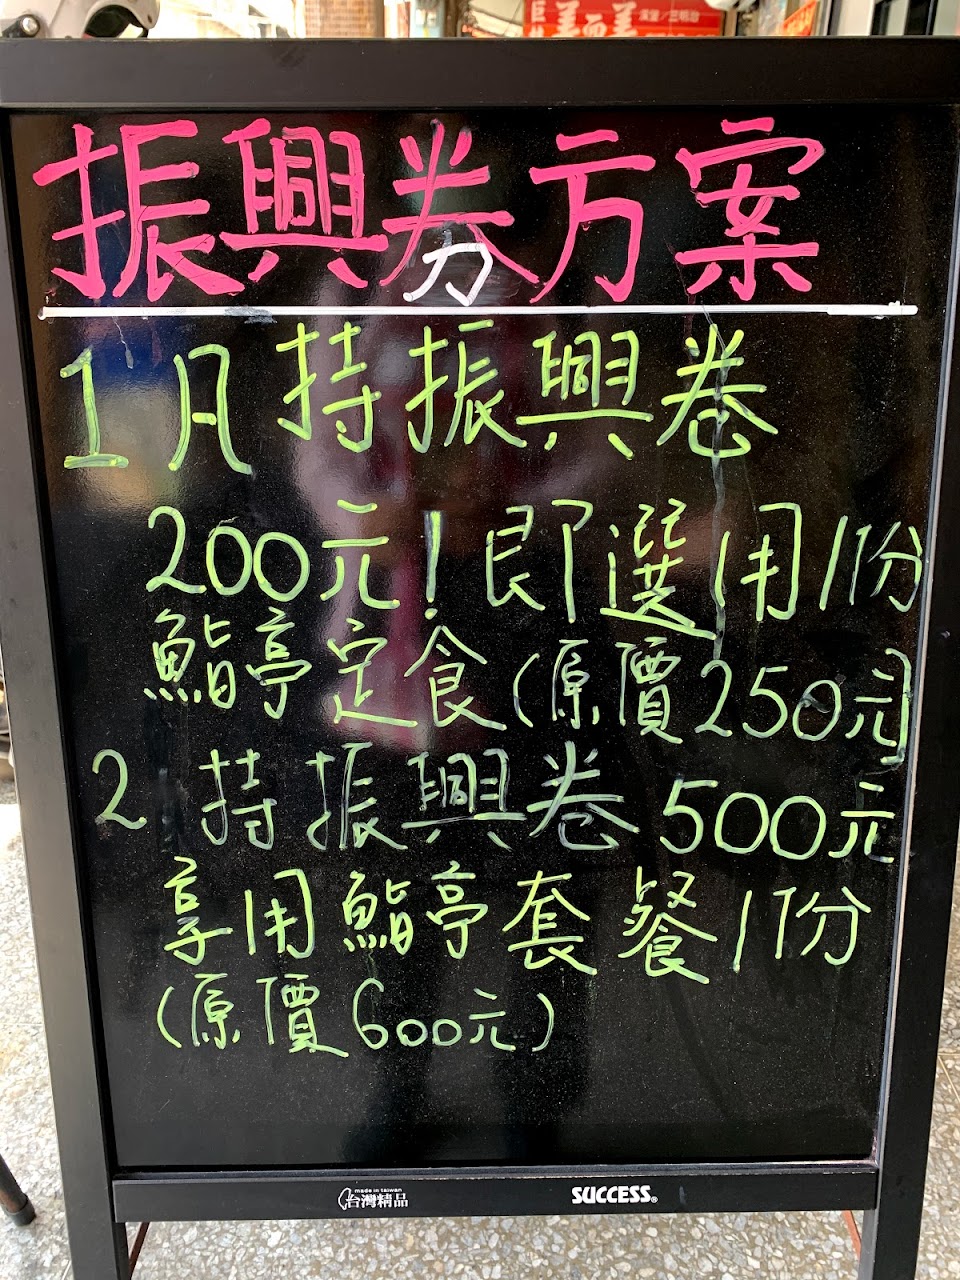 美而美
漢堡/三明治
振興券方案
1月持振興卷
200元!即選用1份
鮨亭定食(原價250元)
2 持振興卷500元
享用鮨亭套餐1份
(原價600元)
made in taiwan
台灣精品
SUCCESS®